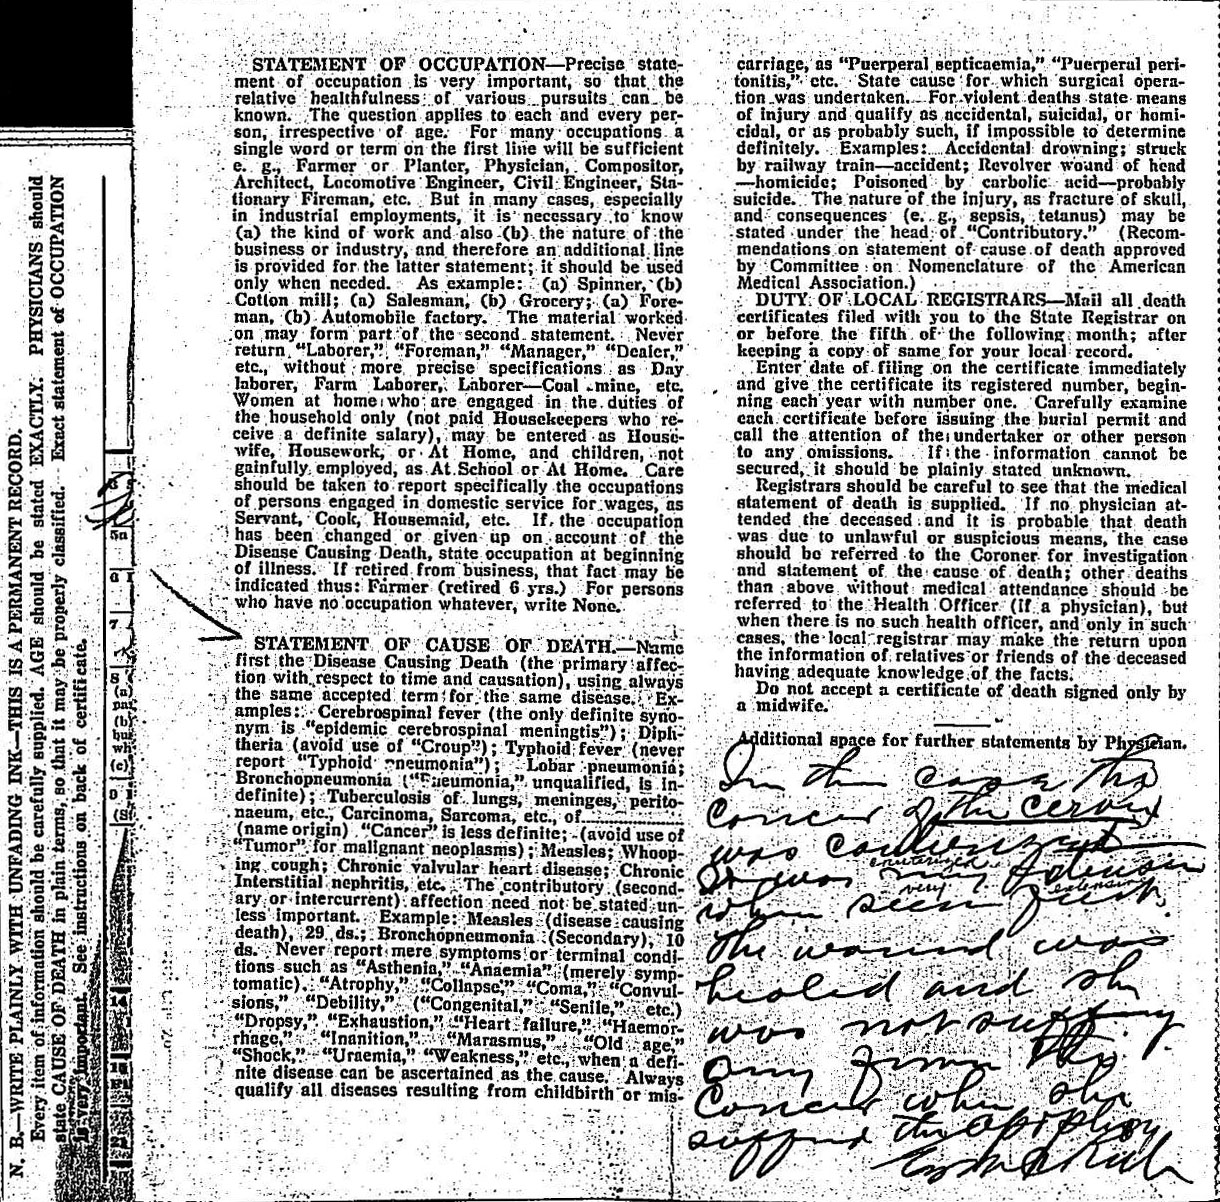 N. B.—WRITE PLAINLY WITH UNFADING INK—THIS IS A PERMANENT RECORD.
Every item of information should be carefully supplied. AGE should be stated EXACTLY. PHYSICIANS should
state CAUSE OF DEATH in plain terms, so that it may be properly classified. Exact statement of OCCUPATION
is very important. See instructions on back of certificate.
5a
6
7
8
(a)
(b)
wh
(c)
9
(S
STATEMENT OF OCCUPATION—Precise state-
ment of occupation is very important, so that the
relative healthfulness of various pursuits can be
known. The question applies to each and every per-
son, irrespective of age. For many occupations a
single word or term on the first line will be sufficient
e. g., Farmer or Planter, Physician, Compositor,
Architect, Locomotive Engineer, Civil Engineer, Sta-
tionary Fireman, etc. But in many cases, especially
in industrial employments, it is necessary to know
(a) the kind of work and also (b) the nature of the
business or industry, and therefore an additional line
is provided for the latter statement; it should be used
only when needed. As example: (a) Spinner, (b)
Cotton mill; (a) Salesman, (b) Grocery; (a) Fore-
man, (b) Automobile factory. The material worked
on may form part of the second statement. Never
return "Laborer," "Foreman," "Manager," "Dealer,"
etc., without more precise specifications as Day
laborer, Farm Laborer, Laborer—Coal mine, etc.
Women at home who are engaged in the duties of
the household only (not paid Housekeepers who re-
ceive a definite salary), may be entered as House-
wife, Housework, or At Home, and children, not
gainfully employed, as At School or At Home. Care
should be taken to report specifically the occupations
of persons engaged in domestic service for wages, as
Servant, Cook, Housemaid, etc. If the occupation
has been changed or given up on account of the
Disease Causing Death, state occupation at beginning
of illness. If retired from business, that fact may be
indicated thus: Farmer (retired 6 yrs.) For persons
who have no occupation whatever, write None.
STATEMENT OF CAUSE OF DEATH.—Name
first the Disease Causing Death (the primary affec-
tion with respect to time and causation), using always
the same accepted term for the same disease. Ex-
amples: Cerebrospinal fever (the only definite syno-
nym is "epidemic cerebrospinal meningtis"); Diph-
theria (avoid use of "Croup"); Typhoid fever (never
report "Typhoid pneumonia"); Lobar pneumonia;
Bronchopneumonia ("Pneumonia," unqualified, is in-
definite); Tuberculosis of lungs, meninges, perito-
naeum, etc., Carcinoma, Sarcoma, etc., of
(name origin) "Cancer" is less definite; (avoid use of
"Tumor" for malignant neoplasms); Measles; Whoop-
ing cough; Chronic valvular heart disease; Chronic
Interstitial nephritis, etc. The contributory (second-
ary or intercurrent) affection need not be stated un-
less important. Example: Measles (disease causing
death), 29 ds.; Bronchopneumonia (Secondary), 10
ds. Never report mere symptoms or terminal condi-
tions such as "Asthenia," "Anaemia" (merely symp-
tomatic). "Atrophy," "Collapse," "Coma," "Convul-
sions," "Debility," ("Congenital," "Senile," etc.)
"Dropsy," "Exhaustion," "Heart failure," "Haemor-
rhage," "Inanition," "Marasmus," "Old age,"
"Shock," "Uraemia," "Weakness," etc., when a defi-
nite disease can be ascertained as the cause. Always
qualify all diseases resulting from childbirth or mis-
carriage, as "Puerperal septicaemia," "Puerperal peri-
tonitis," etc. State cause for which surgical opera-
tion was undertaken. For violent deaths state means
of injury and qualify as accidental, suicidal, or homi-
cidal, or as probably such, if impossible to determine
definitely. Examples: Accidental drowning; struck
by railway train—accident; Revolver wound of head
—homicide; Poisoned by carbolic acid—probably
suicide. The nature of the injury, as fracture of skull,
and consequences (e. g., sepsis, tetanus) may be
stated under the head of "Contributory." (Recom-
mendations on statement of cause of death approved
by Committee on Nomenclature of the American
Medical Association.)
DUTY OF LOCAL REGISTRARS—Mail all death
certificates filed with you to the State Registrar on
or before the fifth of the following month; after
keeping a copy of same for your local record.
Enter date of filing on the certificate immediately
and give the certificate its registered number, begin-
ning each year with number one. Carefully examine
each certificate before issuing the burial permit and
call the attention of the undertaker or other person
to any omissions. If the information cannot be
secured, it should be plainly stated unknown.
Registrars should be careful to see that the medical
statement of death is supplied. If no physician at-
tended the deceased and it is probable that death
was due to unlawful or suspicious means, the case
should be referred to the Coroner for investigation
and statement of the cause of death; other deaths
than above without medical attendance should be
referred to the Health Officer (if a physician), but
when there is no such health officer, and only in such
cases, the local registrar may make the return upon
the information of relatives or friends of the deceased
having adequate knowledge of the facts.
Do not accept a certificate of death signed only by
a midwife.
Additional space for further statements by Physician.
In this case the
cancer of the cervix
was cauterized
cauterized
It was very extensive
very extensive
when seen first.
The wound was
healed and she
was not suffering
any from the
cancer when she
suffered the apoplexy